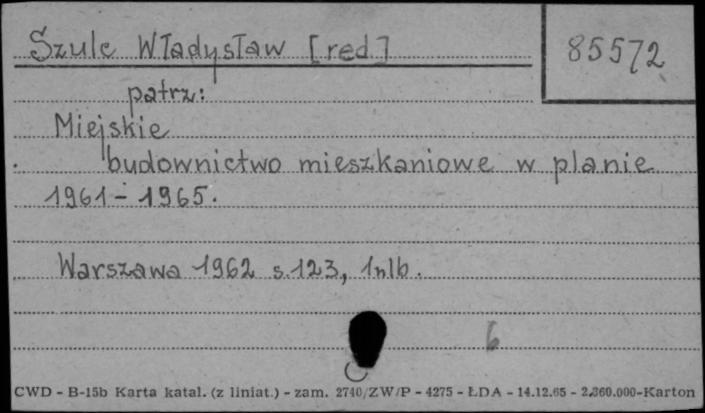 Szulc Władysław [red.]
85572
patrz:
Miejskie
budownictwo mieszkaniowe w planie
1961 - 1965.
Warszawa 1962 s. 123, 1 nlb.
6
CWD - B-15b Karta katal. (z liniat.) - zam. 2740/ZW/P - 4275 - ŁDA - 14.12.65 - 2.360.000-Karton